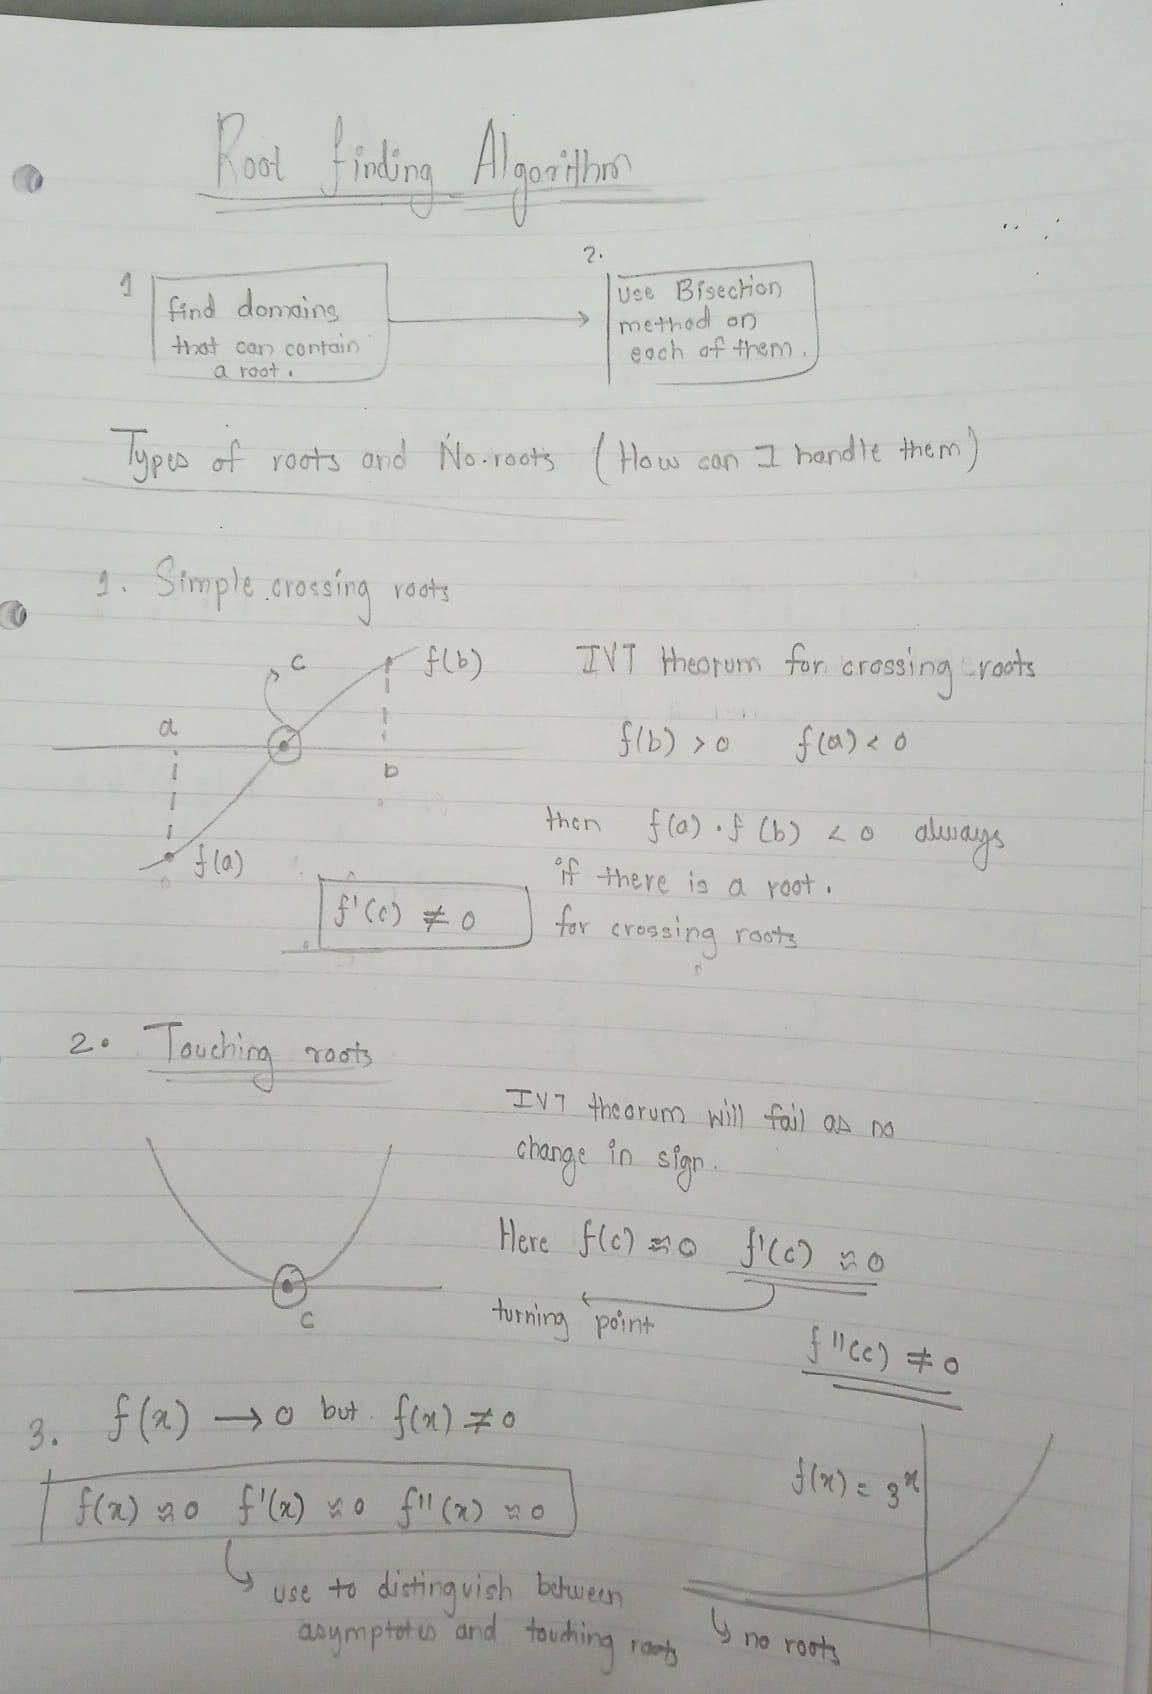 Root finding Algorithm
1
find domains
that can contain
a root.
2.
Use Bisection
method on
each of them.
Types of roots and No-roots (How can I handle them)
1. Simple crossing roots
c
f(b)
a
b
f(a)
IVT theorum for crossing roots
f(b) > 0 f(a) < 0
then f(a) · f(b) < 0 always
if there is a root.
f'(c) ≠ 0 for crossing roots
2. Touching roots
IVT theorum will fail as no
change in sign.
Here f(c) ≈ 0 f'(c) ≈ 0
turning point
f''(c) ≠ 0
c
3. f(x) → 0 but f(x) ≠ 0
f(x) ≈ 0 f'(x) ≈ 0 f''(x) ≈ 0
use to distinguish between
asymptotes and touching roots
f(x) = 3ˣ
no roots